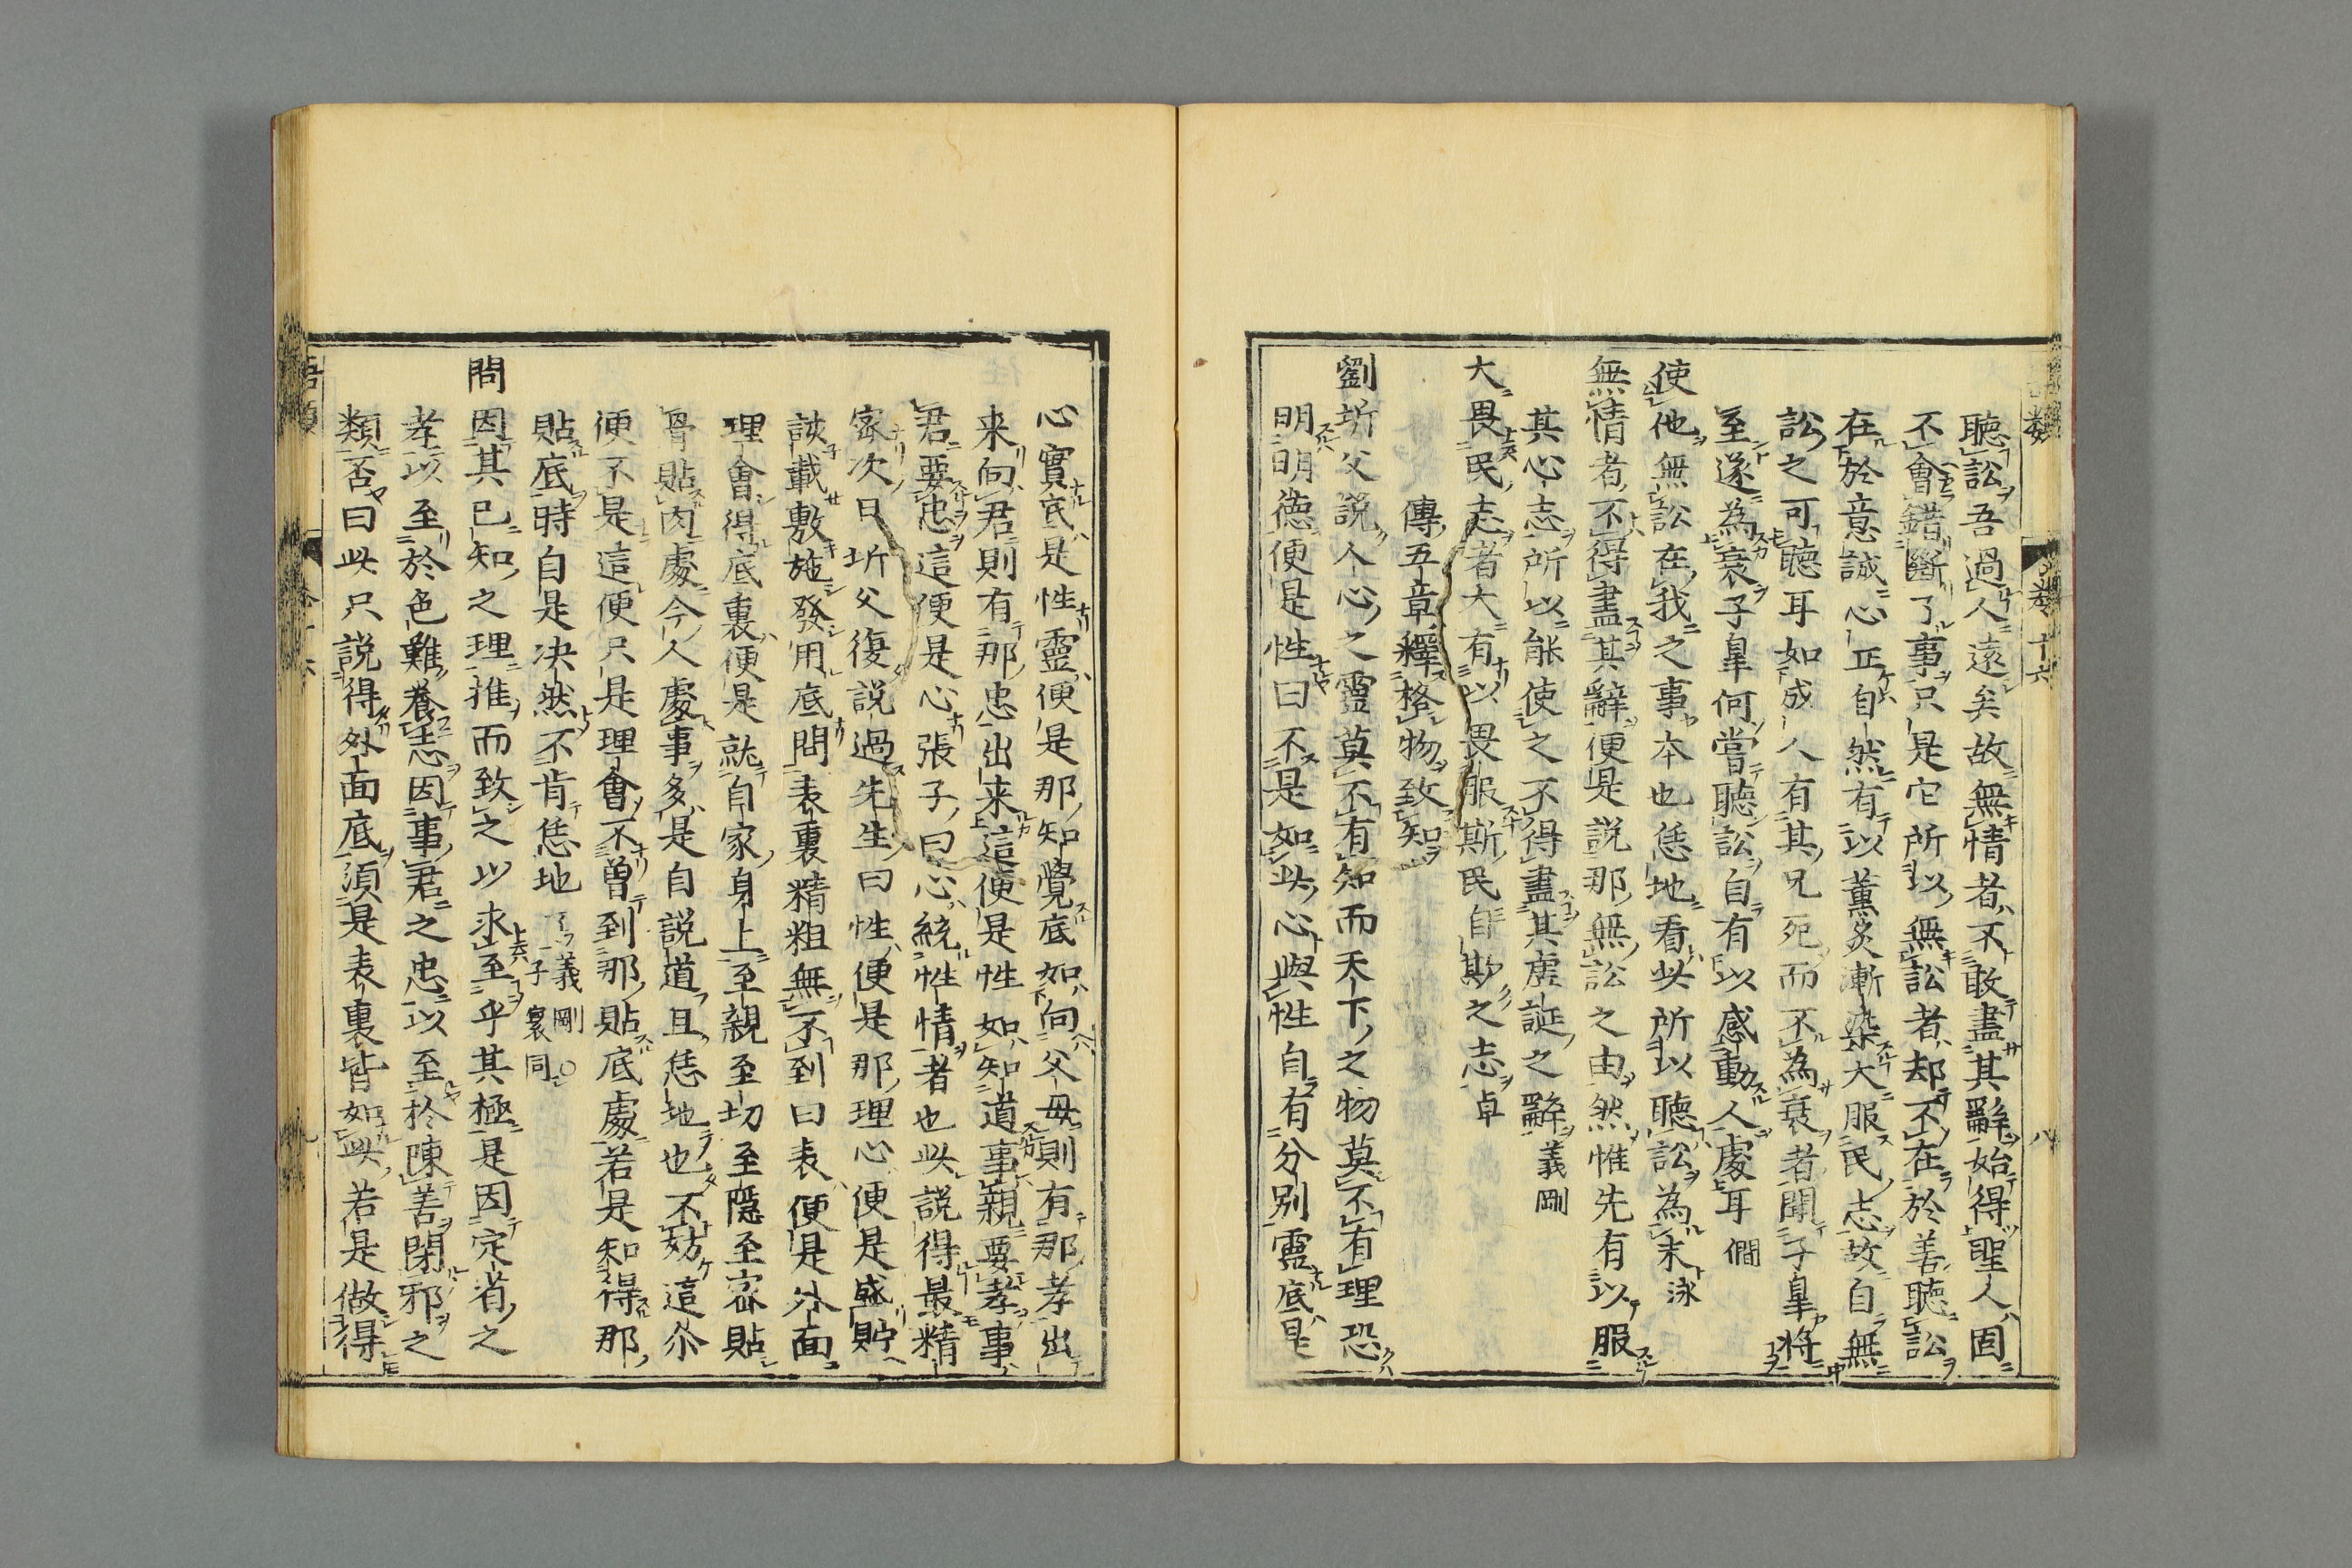 語類 卷十六 八
聽訟吾過人遠矣故無情者不敢盡其辭始得聖人固
不會錯斷了事只是它所以無訟者却不在於善聽訟
在於意誠心正自然有以薰炙漸染大服民志故自無
訟之可聽耳如成人有其兄死而不為衰者聞子皐將
至遂為衰子皐何嘗聽訟自有以感動人處耳僩
使他無訟在我之事本也恁地看此所以聽訟為末泳
無情者不得盡其辭便是説那無訟之由然惟先有以服
其心志所以能使之不得盡其虚誕之辭義剛
大畏民志者大有以畏服斯民自欺之志卓
傳五章釋格物致知
劉圻父説人心之靈莫不有知而天下之物莫不有理恐
明明德便是性曰不是如此心與性自有分别靈底是
心實底是性靈便是那知覺底如向父母則有那孝出
来向君則有那忠出来這便是性如知道事親要孝事
君要忠這便是心張子曰心統性情者也此説得最精
宻次日圻父復説過先生曰性便是那理心便是盛貯
該載敷施發用底問表裏精粗無不到曰表便是外面
理會得底裏便是就自家身上至親至切至隱至宻貼
骨貼肉處今人處事多是自説道且恁地也不妨這个
便不是這便只是理會不曾到那貼底處若是知得那
貼底時自是决然不肯恁地了義剛○子寰同
問因其已知之理推而致之以求至乎其極是因定省之
孝以至於色難養志因事君之忠以至於陳善閉邪之
類否曰此只説得外面底須是表裏皆如此若是做得